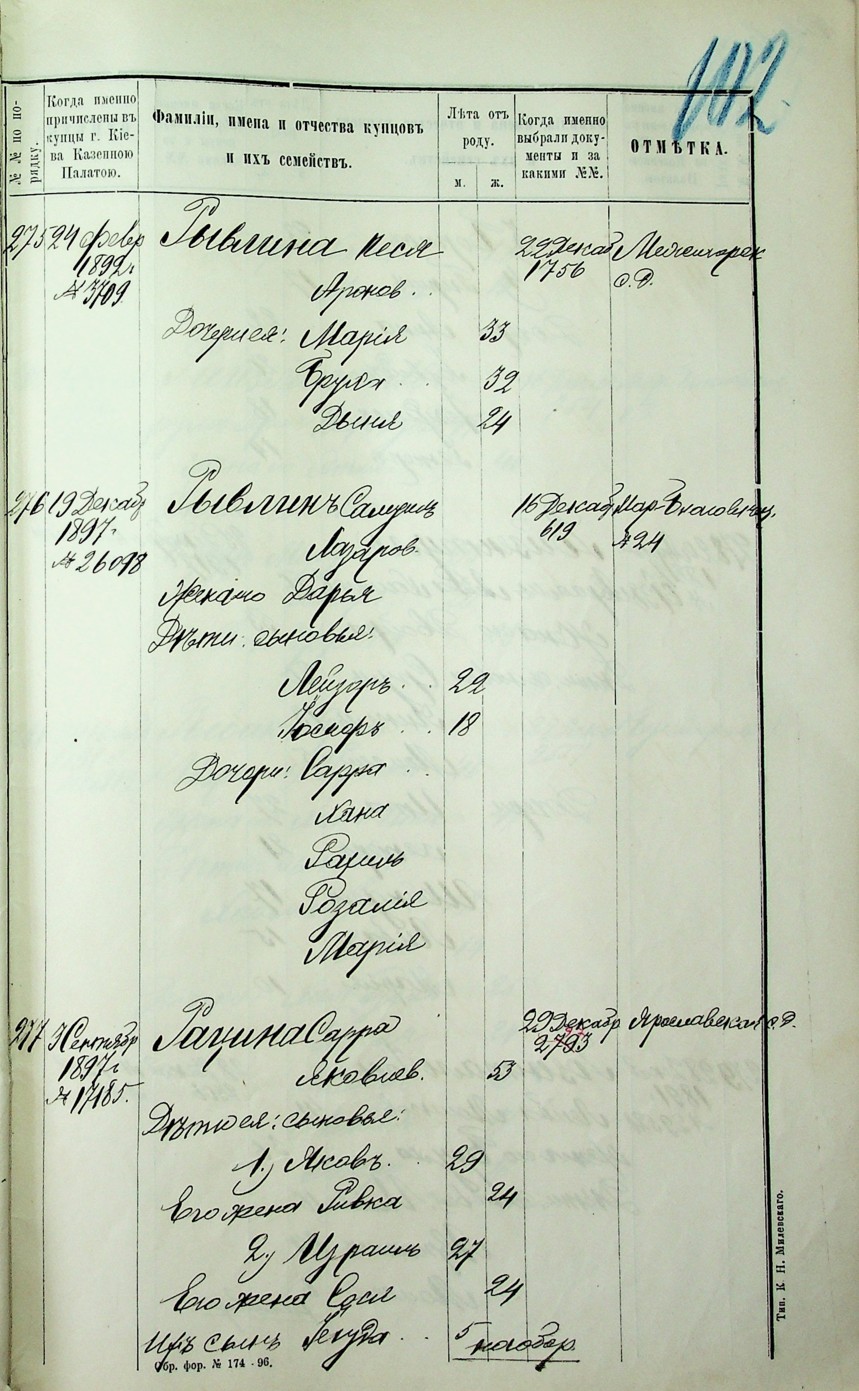 102.
№№ по порядку.
Когда именно
причислены въ
купцы г. Кіе-
ва Казенною
Палатою.
Фамиліи, имена и отчества купцовъ
и ихъ семействъ.
Лѣта отъ
роду.
м. ж.
Когда именно
выбрали доку-
менты и за
какими №№.
ОТМѢТКА.
275 24 февр Рывлина Песя 22 Декаб
1892 г. Аронов. 1756 с. д.
№ 3709
Дочери ея: Марія 33
Бруха 32
Двейя 24
276 19 Декаб Рывлинъ Самуилъ 16 Декаб Мар. Благовѣщ.
1897 г. Лазаров. 619 № 24
№ 26098
Жена его Дарья
Дѣти: сыновья:
Лейзоръ 22
Іосифъ 18
Дочери: Сарра
Хана
Рахиль
Розалія
Марія
277 Сентябр Рацина Сарра 29 Декабр Ярославская с. д.
1897 г. Яковлев. 53 2793
№ 17185.
Дѣти ея: сыновья:
1.) Яковъ. 29
Его жена Ривка 24
2.) Израиль 27
Его жена Сося 24
Ихъ сынъ Іегуда 5 на обор.
Обр. фор. № 174 - 96.
Тип. К. Н. Милевскаго.